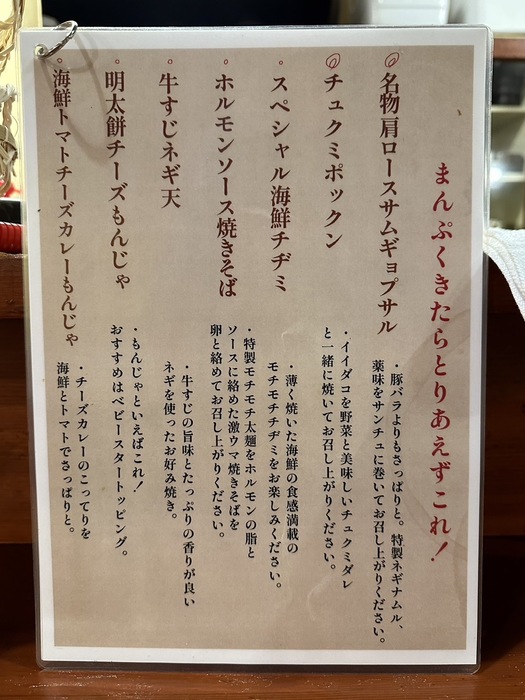 まんぷくきたらとりあえずこれ！
◎名物肩ロースサムギョプサル
・豚バラよりもさっぱりと。特製ネギナムル、
薬味をサンチュに巻いてお召し上がりください。
◎チュクミポックン
・イイダコを野菜と美味しいチュクミダレ
と一緒に焼いてお召し上がりください。
○スペシャル海鮮チヂミ
・薄く焼いた海鮮の食感満載の
モチモチチヂミをお楽しみください。
○ホルモンソース焼きそば
・特製モチモチ太麺をホルモンの脂と
ソースに絡めた激ウマ焼きそばを
卵と絡めてお召し上がりください。
○牛すじネギ天
・牛すじの旨味とたっぷりの香りが良い
ネギを使ったお好み焼き。
○明太餅チーズもんじゃ
・もんじゃといえばこれ！
おすすめはベビースタートッピング。
○海鮮トマトチーズカレーもんじゃ
・チーズカレーのこってりを
海鮮とトマトでさっぱりと。